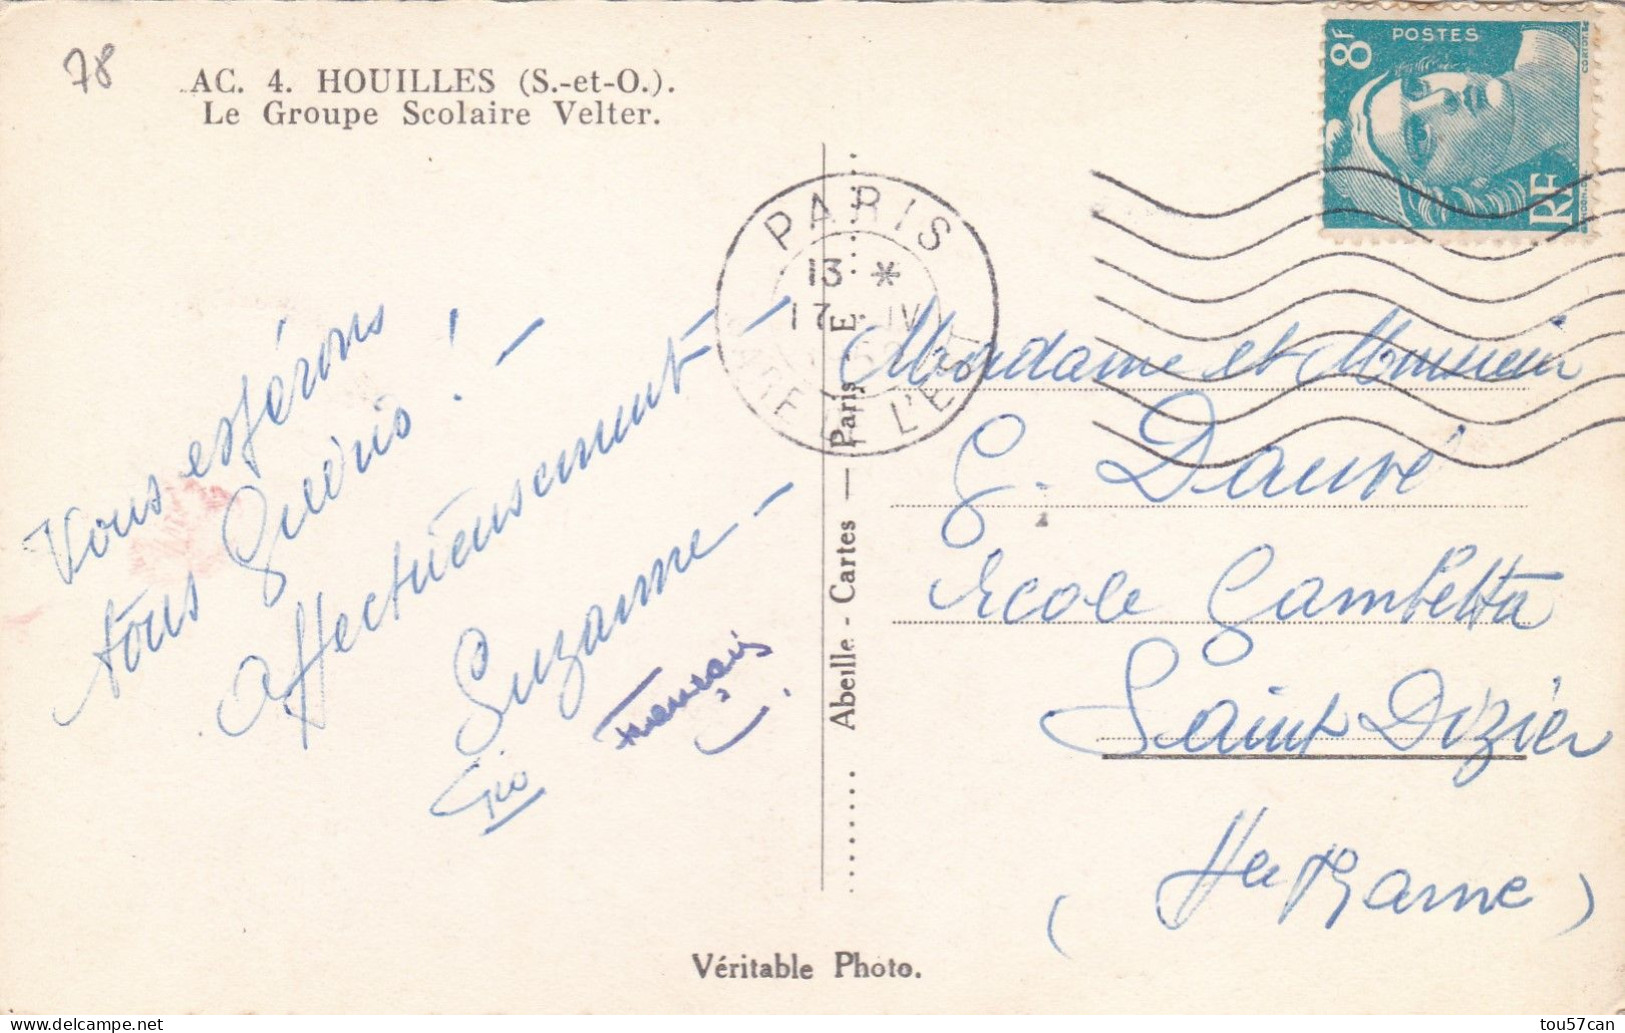 78
AC. 4. HOUILLES (S.-et-O.).
Le Groupe Scolaire Velter.
8F
POSTES
RF
PARIS
13 *
17 IV
GARE DE L'EST
Vous espérons
tous guéris !
Affectueusement
Suzanne
Gio
Français
Abeille - Cartes — Paris E.
Madame et Monsieur
G. Dauvé
Ecole Gambetta
Saint Dizier
(Hte Marne)
Véritable Photo.
tou57can